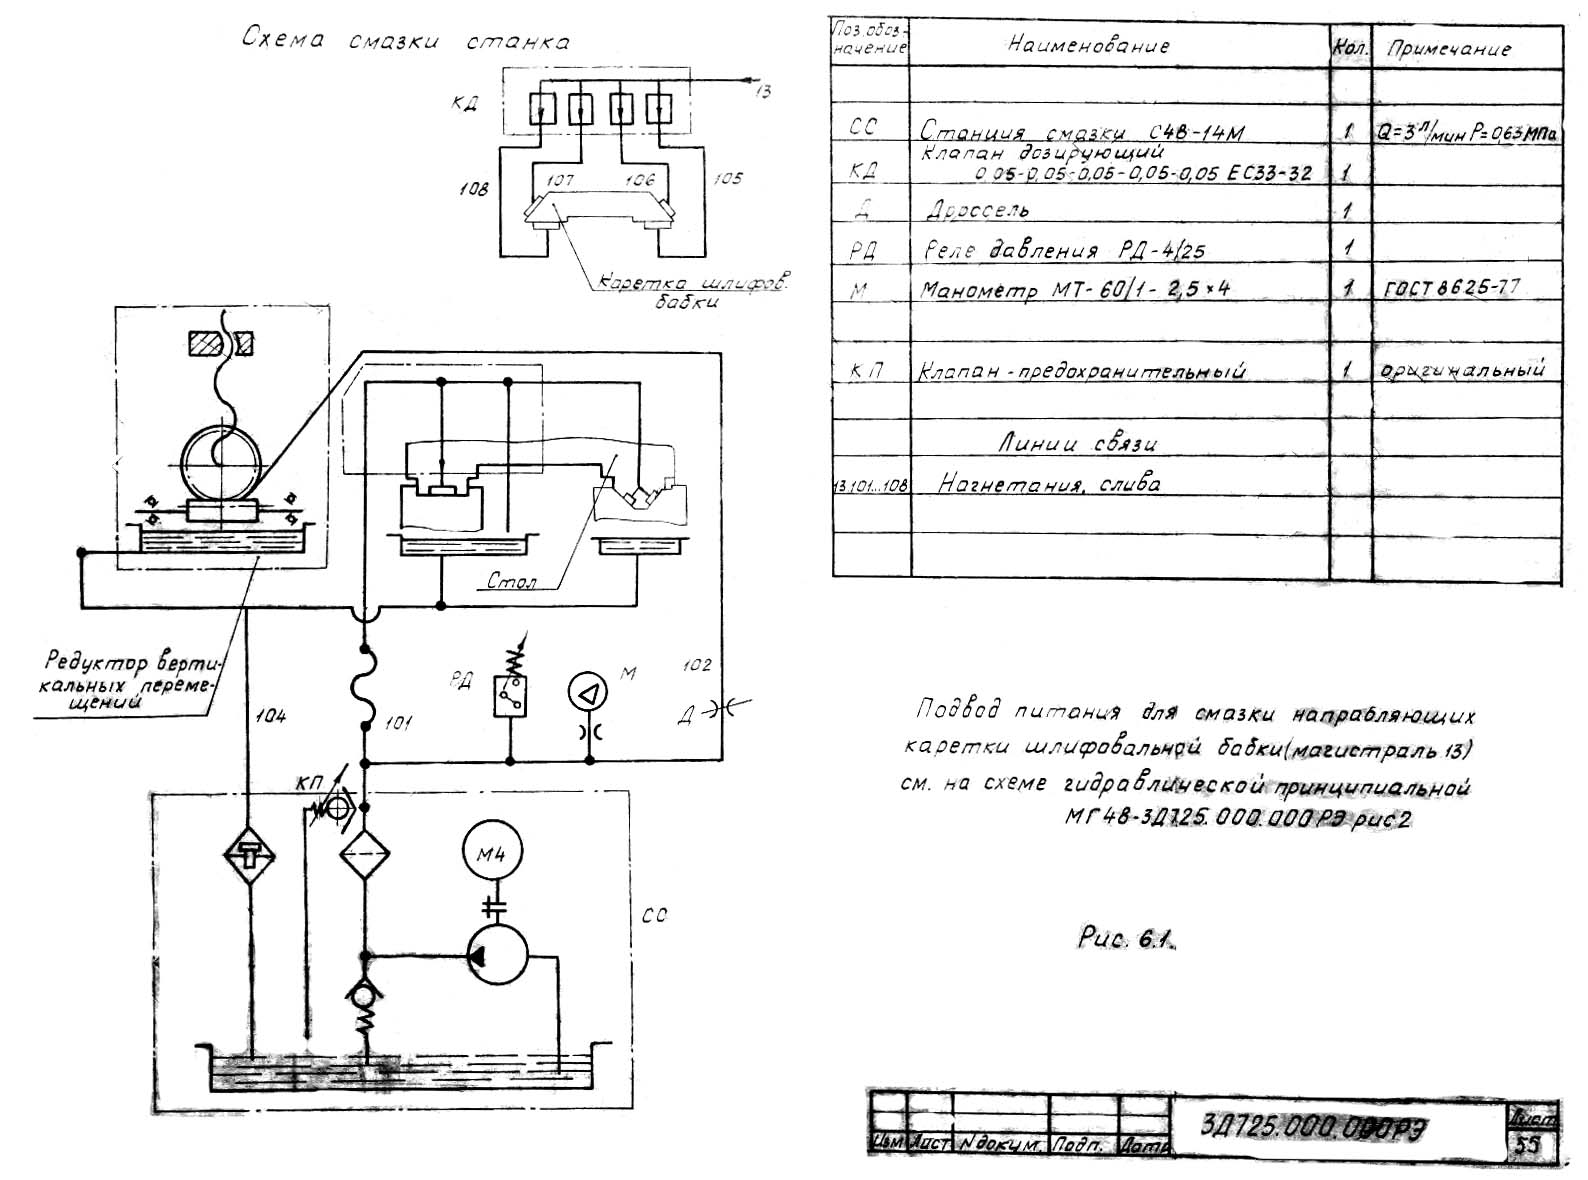 Схема смазки станка
КД
13
108
107
106
105
Каретка шлифов.
бабки
Стол
Редуктор верти-
кальных переме-
щений
104
101
РД
М
102
Д
КП
М4
СС
Поз.обоз-
начение
Наименование
Кол.
Примечание
СС Станция смазки С48-14М 1 Q=3л/мин Р=0,63МПа
КД Клапан дозирующий
0,05-0,05-0,05-0,05-0,05 ЕС33-32 1
Д Дроссель 1
РД Реле давления РД-4/25 1
М Манометр МТ-60/1-2,5×4 1 ГОСТ 8625-77
КП Клапан-предохранительный 1 оригинальный
Линии связи
13.101...108 Нагнетания, слива
Подвод питания для смазки направляющих
каретки шлифовальной бабки(магистраль 13)
см. на схеме гидравлической принципиальной
МГ48-3Д725.000.000РЭ рис2
Рис. 6.1.
Изм Лист N докум. Подп. Дата
3Д725.000.000РЭ
Лист
55